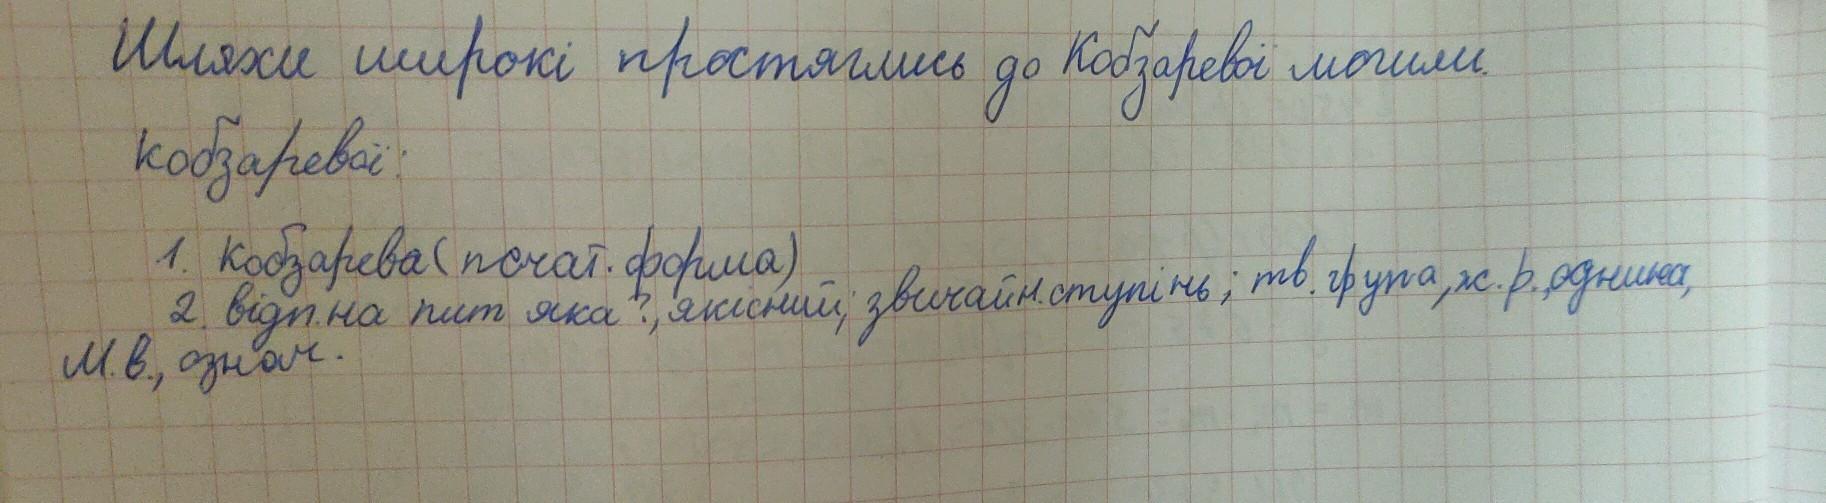 Шляхи широкі простяглись до Кобзаревої могили.
Кобзаревої:
1. Кобзарева (почат. форма)
2. відп. на пит яка?, якісний; звичайн. ступінь; тв. група, ж. р., однина,
М. в., означ.